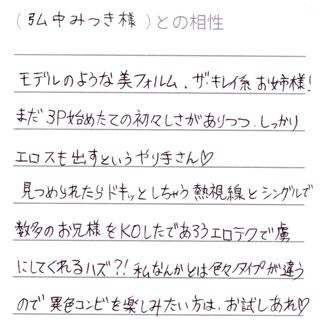 (弘中みつき様)との相性
モデルのような美フォルム、ザ・キレイ系お姉様!
まだ3P始めたての初々しさがありつつ、しっかり
エロスも出すというやり手さん♡
見つめられたらドキッとしちゃう熱視線とシングルで
数多のお兄様をKOしたであろうエロテクで虜
にしてくれるハズ?!私なんかとは色々タイプが違う
ので異色コンビを楽しみたい方は、お試しあれ♡